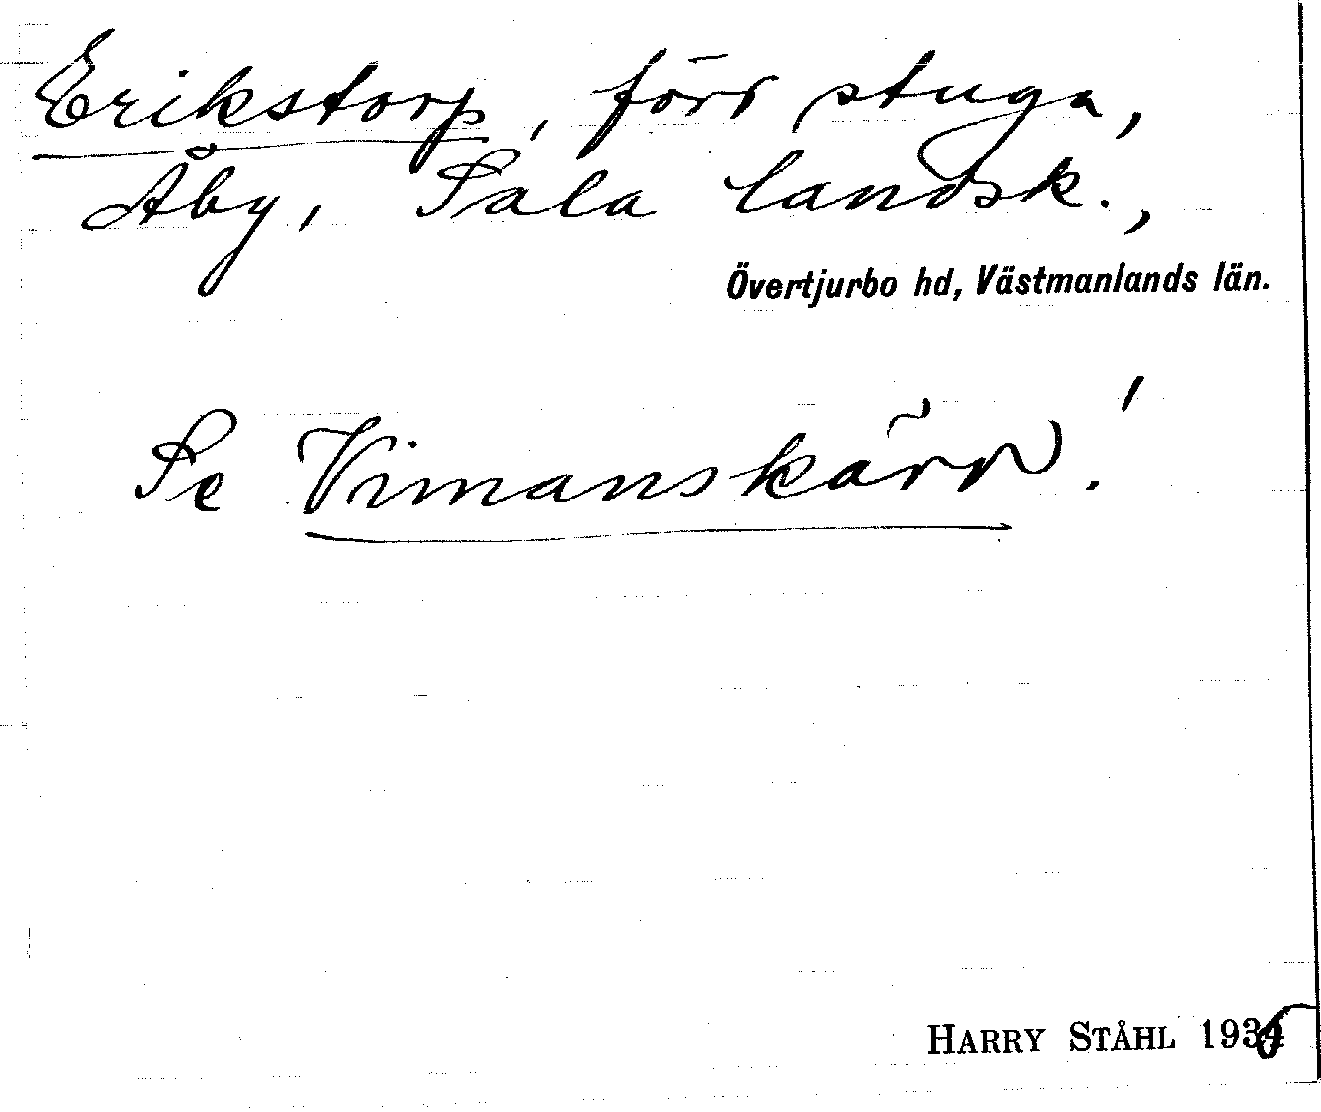 Erikstorp, förr stuga,
Åby, Sala landsk.,
Övertjurbo hd, Västmanlands län.
Se Vimanskärr!
HARRY STÅHL 1935